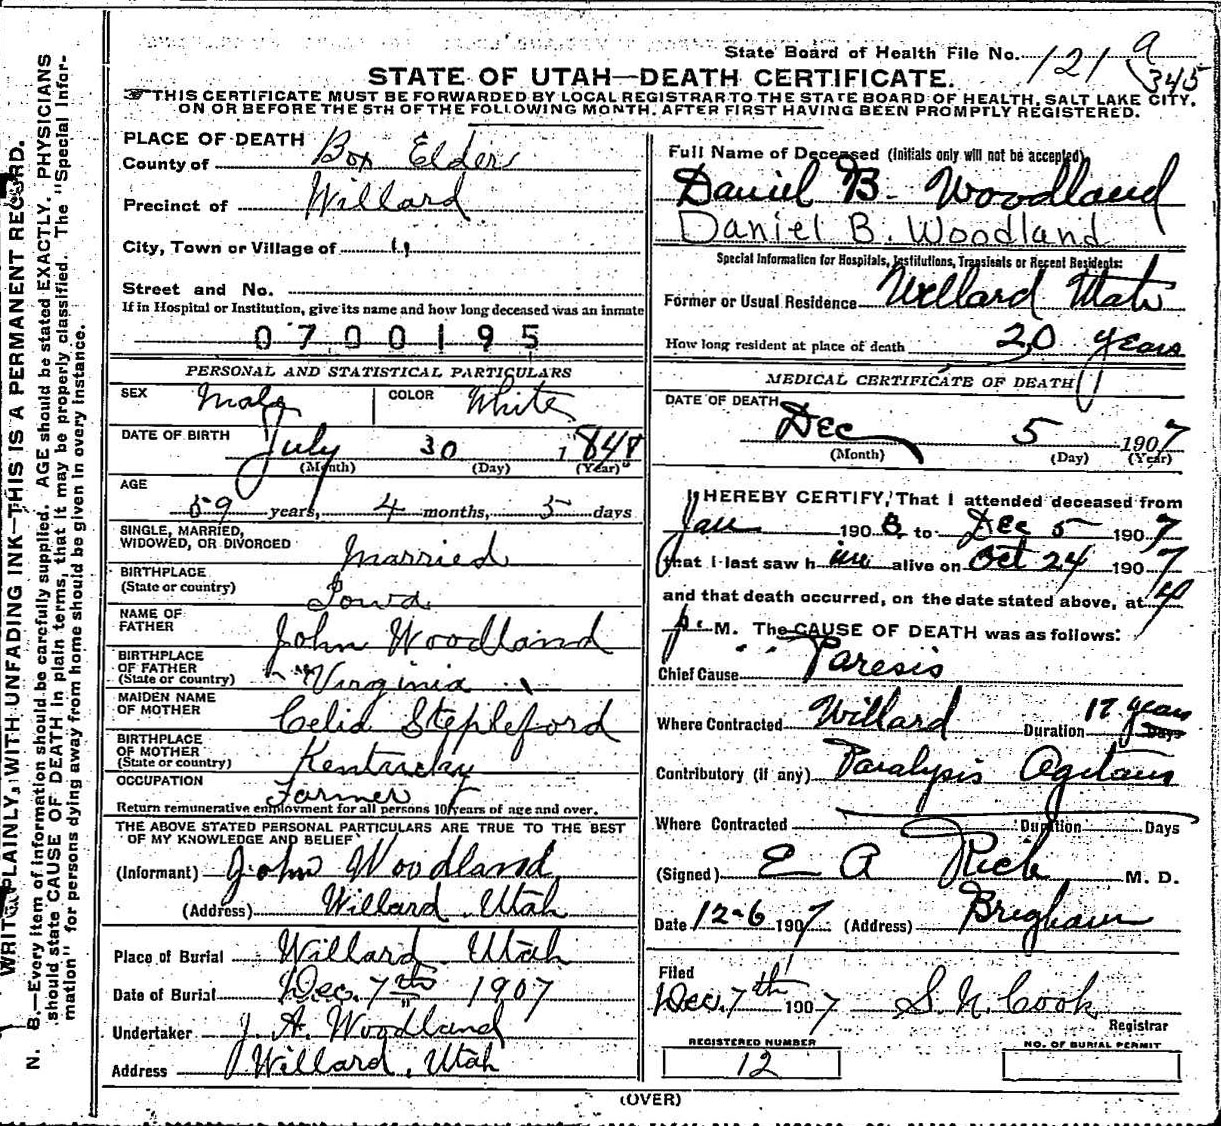 State Board of Health File No. 121 a
345
STATE OF UTAH—DEATH CERTIFICATE.
THIS CERTIFICATE MUST BE FORWARDED BY LOCAL REGISTRAR TO THE STATE BOARD OF HEALTH, SALT LAKE CITY,
ON OR BEFORE THE 5TH OF THE FOLLOWING MONTH, AFTER FIRST HAVING BEEN PROMPTLY REGISTERED.
WRITE PLAINLY, WITH UNFADING INK—THIS IS A PERMANENT RECORD.
N. B.—Every item of information should be carefully supplied. AGE should be stated EXACTLY. PHYSICIANS
should state CAUSE OF DEATH in plain terms, that it may be properly classified. The "Special Infor-
mation" for persons dying away from home should be given in every instance.
PLACE OF DEATH
County of Box Elder
Precinct of Willard
City, Town or Village of "
Street and No.
If in Hospital or Institution, give its name and how long deceased was an inmate
0700195
PERSONAL AND STATISTICAL PARTICULARS
SEX Male COLOR White
DATE OF BIRTH July 30 1848
(Month) (Day) (Year)
AGE
59 years, 4 months, 5 days
SINGLE, MARRIED,
WIDOWED, OR DIVORCED Married
BIRTHPLACE
(State or country) Iowa
NAME OF
FATHER John Woodland
BIRTHPLACE
OF FATHER
(State or country) Virginia
MAIDEN NAME
OF MOTHER Celia Stepleford
BIRTHPLACE
OF MOTHER
(State or country) Kentucky
OCCUPATION Farmer
Return remunerative employment for all persons 10 years of age and over.
THE ABOVE STATED PERSONAL PARTICULARS ARE TRUE TO THE BEST
OF MY KNOWLEDGE AND BELIEF
(Informant) John Woodland
(Address) Willard, Utah
Place of Burial Willard Utah
Date of Burial Dec. 7th 1907
Undertaker J. A. Woodland
Address Willard, Utah
Full Name of Deceased (Initials only will not be accepted)
Daniel B. Woodland
Daniel B. Woodland
Special Information for Hospitals, Institutions, Transients or Recent Residents:
Former or Usual Residence Willard Utah
How long resident at place of death 20 years
MEDICAL CERTIFICATE OF DEATH
DATE OF DEARTH
Dec 5 1907
(Month) (Day) (Year)
I HEREBY CERTIFY, That I attended deceased from
Jan 190 to Dec 5 1907
that I last saw him alive on Oct 24 1907
and that death occurred, on the date stated above, at 4
p. M. The CAUSE OF DEATH was as follows:
Chief Cause Paresis
Where Contracted Willard Duration 17 years Days
Contributory (if any) Paralysis Agitans
Where Contracted Duration Days
(Signed) E A Rich M. D.
Date 12-6 1907 (Address) Brigham
Filed
Dec. 7th 1907 S. N. Cook
Registrar
REGISTERED NUMBER
12
NO. OF BURIAL PERMIT
(OVER)